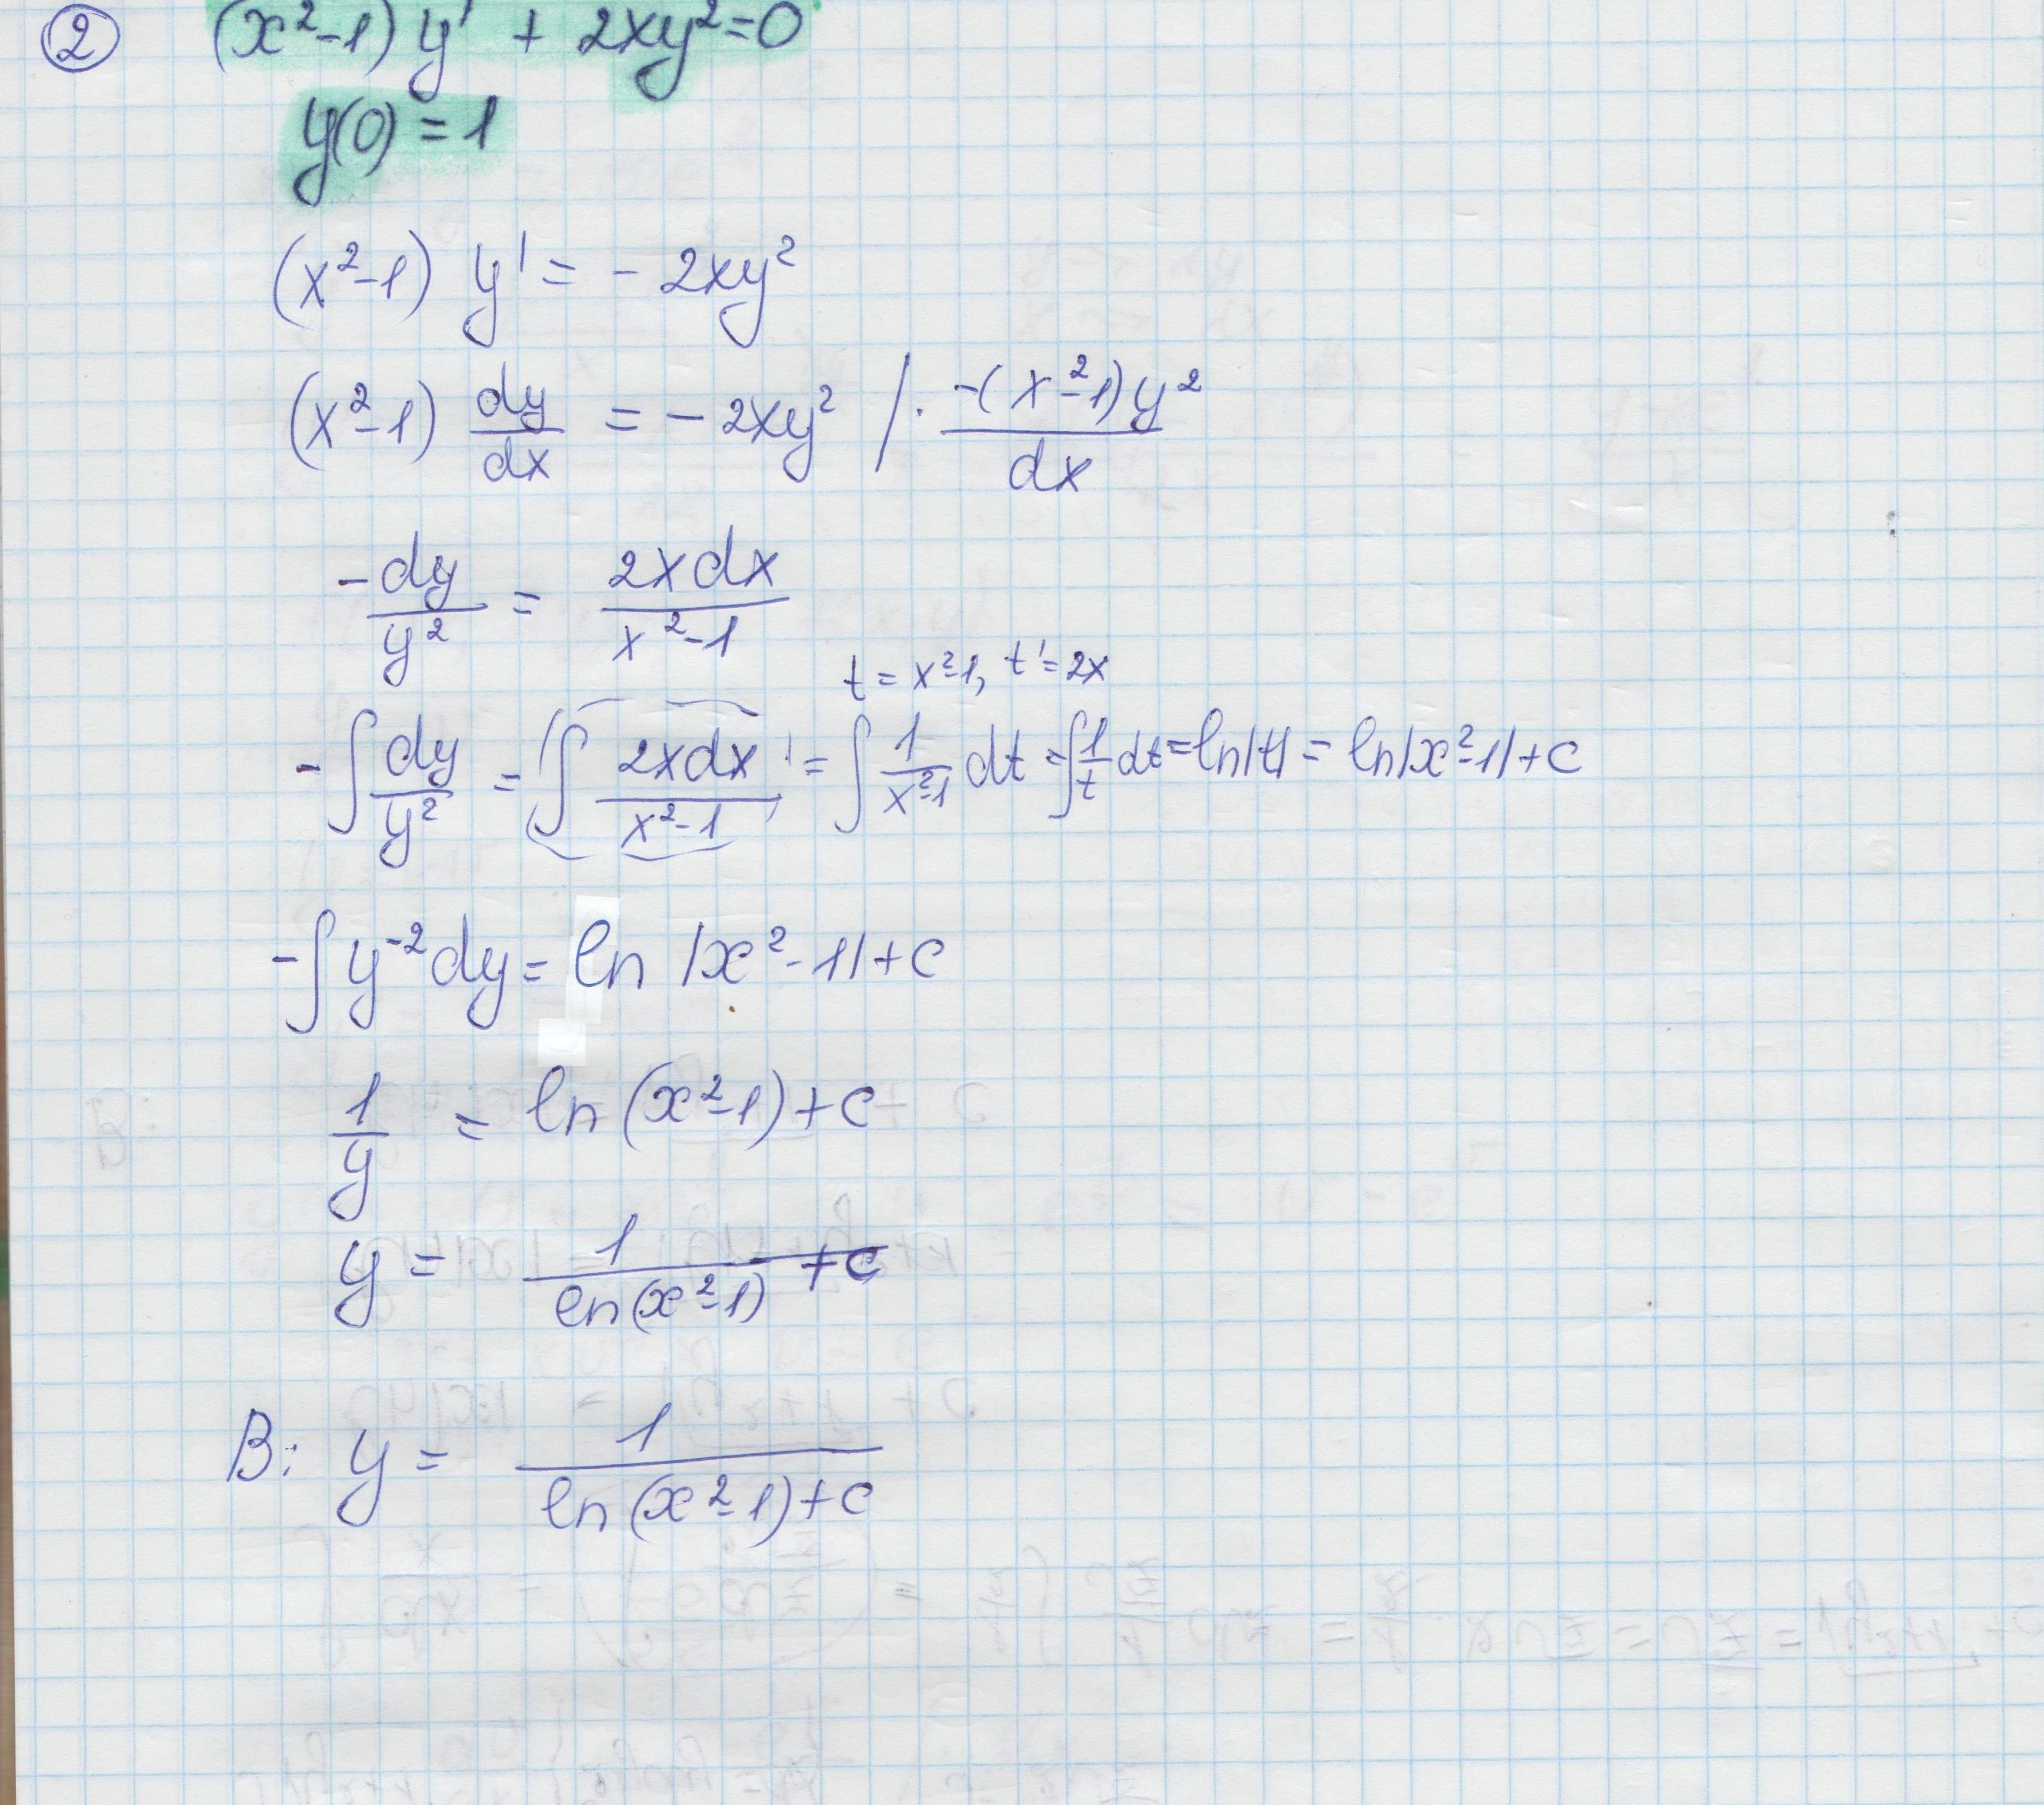 ② (x²-1) y' + 2xy² = 0
y(0) = 1
(x²-1) y' = - 2xy²
(x²-1) dy/dx = - 2xy² / · -(x²-1)y²/dx
-dy/y² = 2xdx/x²-1
t = x²-1, t' = 2x
-∫ dy/y² = (∫ 2xdx/x²-1)' = ∫ 1/x²-1 dt = ∫ 1/t dt = ln|t| = ln|x²-1|+c
-∫ y⁻² dy = ln |x²-1|+c
1/y = ln (x²-1)+c
y = 1/ln(x²-1) +c
B: y = 1/ln(x²-1)+c